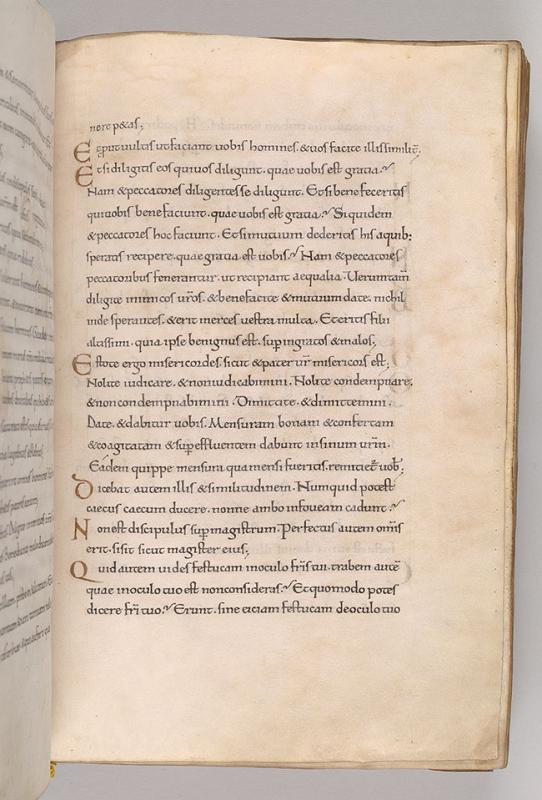 ne repetas;
Et prout vultis ut faciant vobis homines. & vos facite illis similit;
Et si diligitis eos qui vos diligunt. quae vobis est gratia.
Nam & peccatores diligentes se diligunt. Et si bene feceritis
qui vobis bene faciunt. quae vobis est gratia. Si quidem
& peccatores hoc faciunt. Et si mutuum dederitis his a quib;
speratis recipere. quae gratia est vobis. Nam & peccatores
peccatoribus fenerantur. ut recipiant aequalia. Veruntam
diligite inimicos vr̄os. & benefacite & mutuum date. nichil
inde sperantes. & erit merces vestra multa. Et eritis filii
altissimi. quia ipse benignus est. sup ingratos & malos;
Estote ergo misericordes. sicut & pater vr̄ misericors est;
Nolite iudicare. & non iudicabimini. Nolite condempnare,
& non condempnabimini. Dimitate. & dimittemini.
Date. & dabitur vobis. Mensuram bonam & confertam
& coagitatam & supeffluentem dabunt in sinum vr̄m.
Eadem quippe mensura qua mensi fueritis. remitiet͛ vob̄;
Dicebat autem illis & similitudinem. Numquid potest
caecus caecum ducere. nonne ambo in foveam cadunt.
Non est discipulus sup magistrum. Perfectus autem om̄is
erit. si sit sicut magister eius;
Quid autem vides festucam in oculo fr̄is tui. trabem autē
quae in oculo tuo est non consideras. Et quomodo potes
dicere fr̄i tuo. sine eiciam festucam de oculo tuo